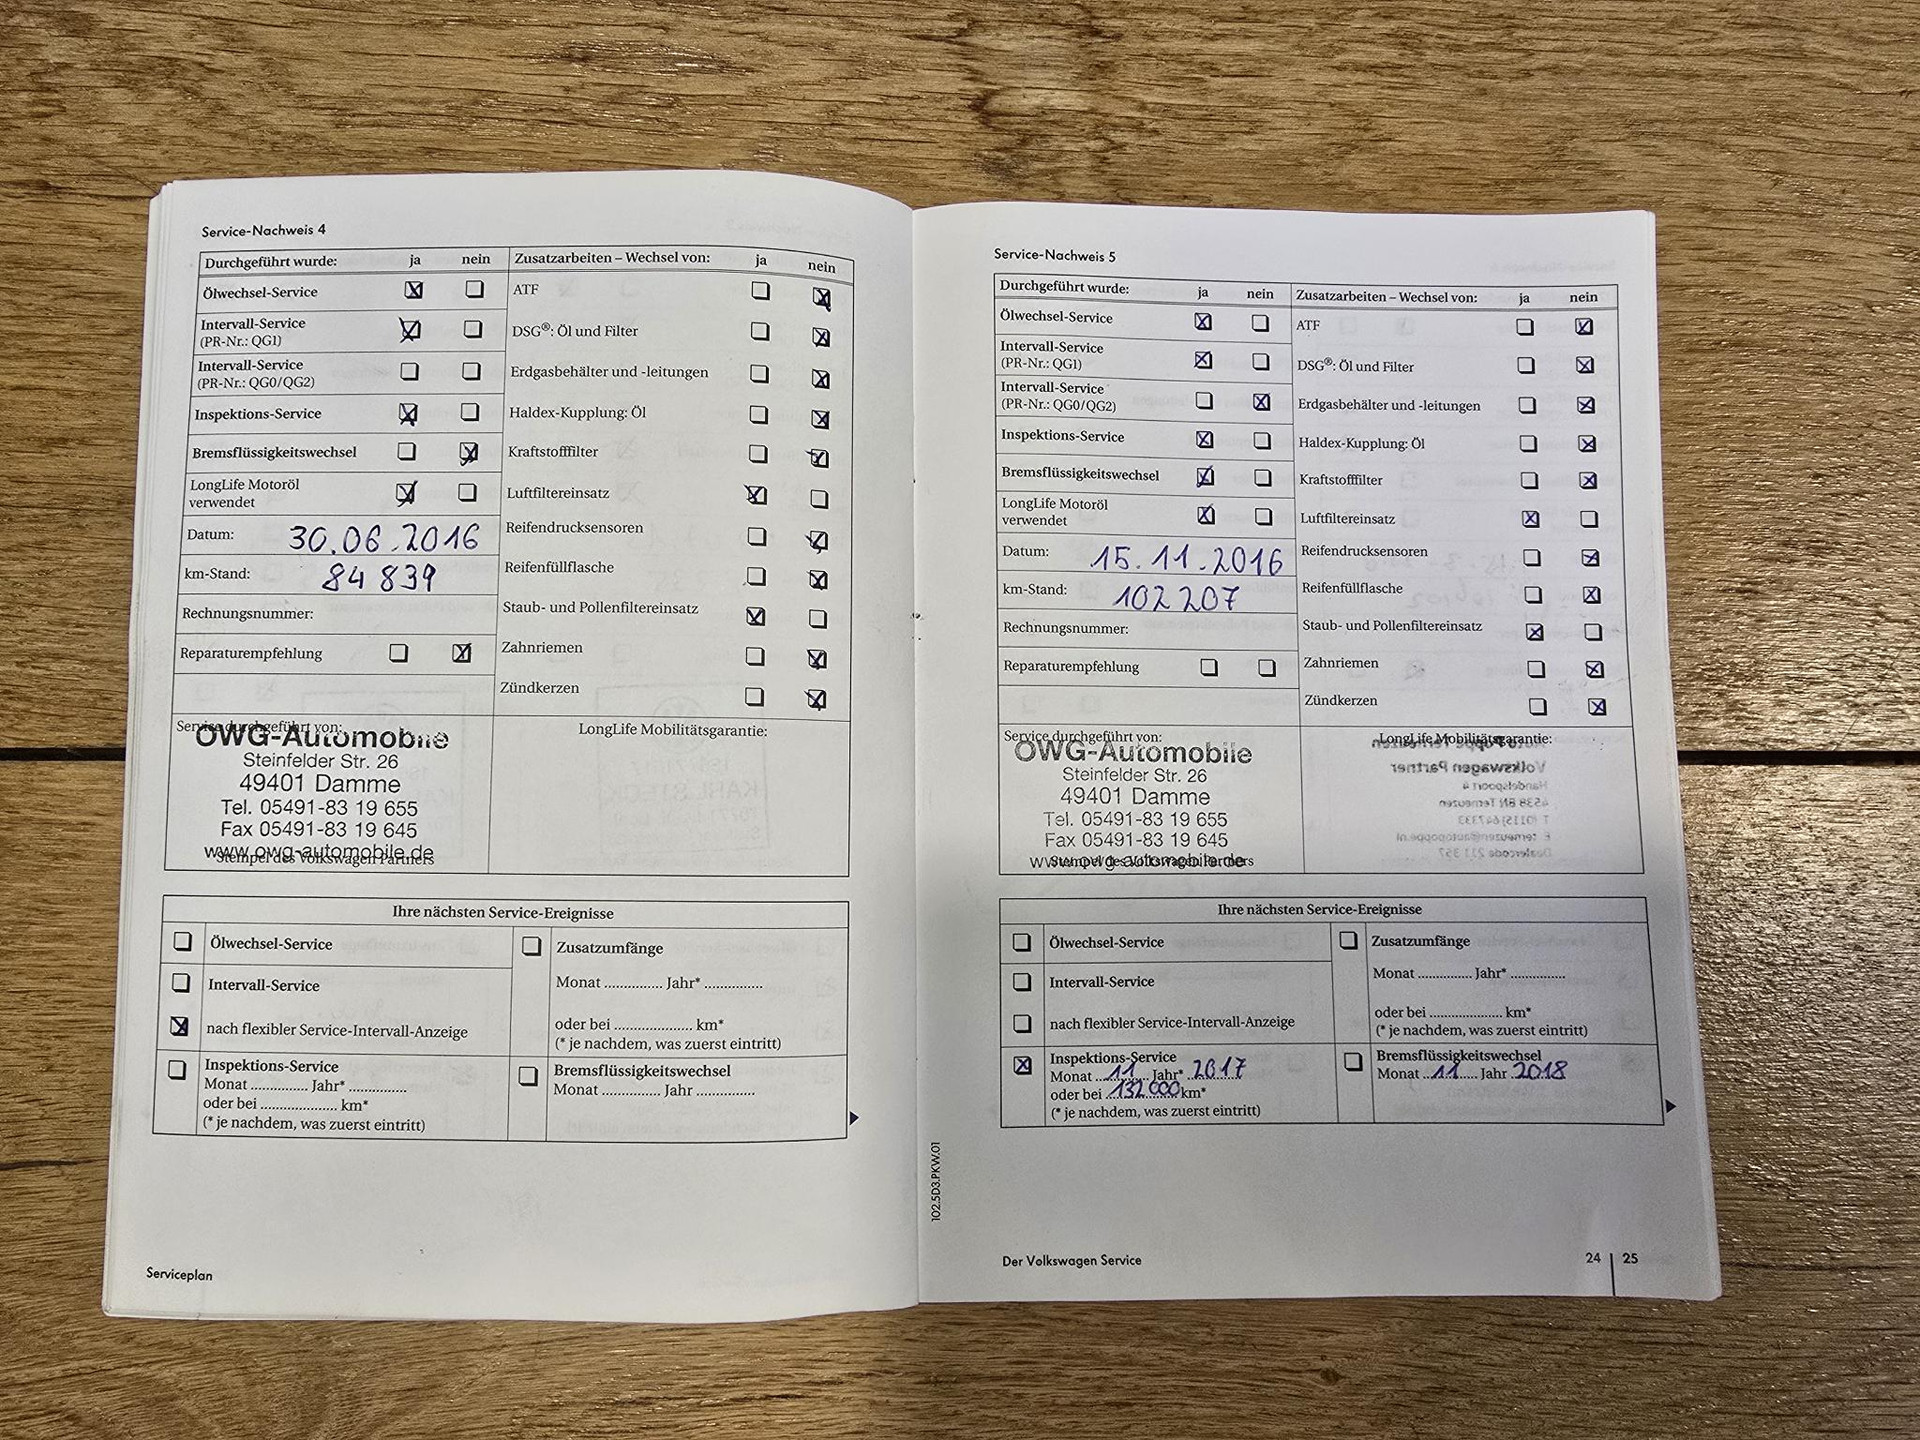 Service-Nachweis 4
Durchgeführt wurde: ja nein
Ölwechsel-Service
Intervall-Service
(PR-Nr.: QG1)
Intervall-Service
(PR-Nr.: QG0/QG2)
Inspektions-Service
Bremsflüssigkeitswechsel
LongLife Motoröl
verwendet
Datum: 30.06.2016
km-Stand: 84 839
Rechnungsnummer:
Reparaturempfehlung
Zusatzarbeiten – Wechsel von: ja nein
ATF
DSG®: Öl und Filter
Erdgasbehälter und -leitungen
Haldex-Kupplung: Öl
Kraftstofffilter
Luftfiltereinsatz
Reifendrucksensoren
Reifenfüllflasche
Staub- und Pollenfiltereinsatz
Zahnriemen
Zündkerzen
Service durchgeführt von:
OWG-Automobile
Steinfelder Str. 26
49401 Damme
Tel. 05491-83 19 655
Fax 05491-83 19 645
www.owg-automobile.de
Stempel des Volkswagen Partners
LongLife Mobilitätsgarantie:
Ihre nächsten Service-Ereignisse
Ölwechsel-Service
Intervall-Service
nach flexibler Service-Intervall-Anzeige
Inspektions-Service
Monat ............. Jahr* .............
oder bei .................... km*
(* je nachdem, was zuerst eintritt)
Zusatzumfänge
Monat ............... Jahr* ...............
oder bei .................... km*
(* je nachdem, was zuerst eintritt)
Bremsflüssigkeitswechsel
Monat ............... Jahr ...............
Serviceplan
Service-Nachweis 5
Durchgeführt wurde: ja nein
Ölwechsel-Service
Intervall-Service
(PR-Nr.: QG1)
Intervall-Service
(PR-Nr.: QG0/QG2)
Inspektions-Service
Bremsflüssigkeitswechsel
LongLife Motoröl
verwendet
Datum: 15.11.2016
km-Stand: 102 207
Rechnungsnummer:
Reparaturempfehlung
Zusatzarbeiten – Wechsel von: ja nein
ATF
DSG®: Öl und Filter
Erdgasbehälter und -leitungen
Haldex-Kupplung: Öl
Kraftstofffilter
Luftfiltereinsatz
Reifendrucksensoren
Reifenfüllflasche
Staub- und Pollenfiltereinsatz
Zahnriemen
Zündkerzen
Service durchgeführt von:
OWG-Automobile
Steinfelder Str. 26
49401 Damme
Tel. 05491-83 19 655
Fax 05491-83 19 645
www.owg-automobile.de
Stempel des Volkswagen Partners
LongLife Mobilitätsgarantie:
Volkswagen Partner
Ihre nächsten Service-Ereignisse
Ölwechsel-Service
Intervall-Service
nach flexibler Service-Intervall-Anzeige
Inspektions-Service
Monat 11 Jahr* 2017
oder bei 132 000 km*
(* je nachdem, was zuerst eintritt)
Zusatzumfänge
Monat .............. Jahr* ..............
oder bei .................... km*
(* je nachdem, was zuerst eintritt)
Bremsflüssigkeitswechsel
Monat 11 Jahr 2018
102.5D3.PKW.01
Der Volkswagen Service
24 | 25